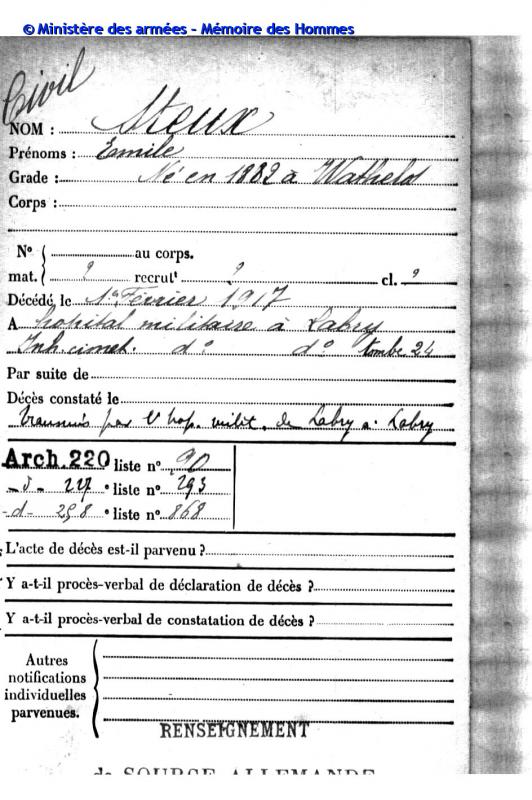 © Ministère des armées - Mémoire des Hommes
Civil
NOM : Steux
Prénoms : Emile
Grade : Né en 1882 à
Corps :
Nº au corps.
mat. ? recrutt ? cl. ?
Décédé le 1er Février 1917
A hopital militaire à Labry
Inh. cimet. dº dº tombe 24
Par suite de
Décès constaté le
transmis par l' hop. milit. de Labry a. Labry
Arch. 220 liste nº 90
- d - 227 liste nº 293
- d - 258 liste nº 868
L'acte de décès est-il parvenu ?
Y a-t-il procès-verbal de déclaration de décès ?
Y a-t-il procès-verbal de constatation de décès ?
Autres
notifications
individuelles
parvenues.
RENSEIGNEMENT
de SOURCE ALLEMANDE